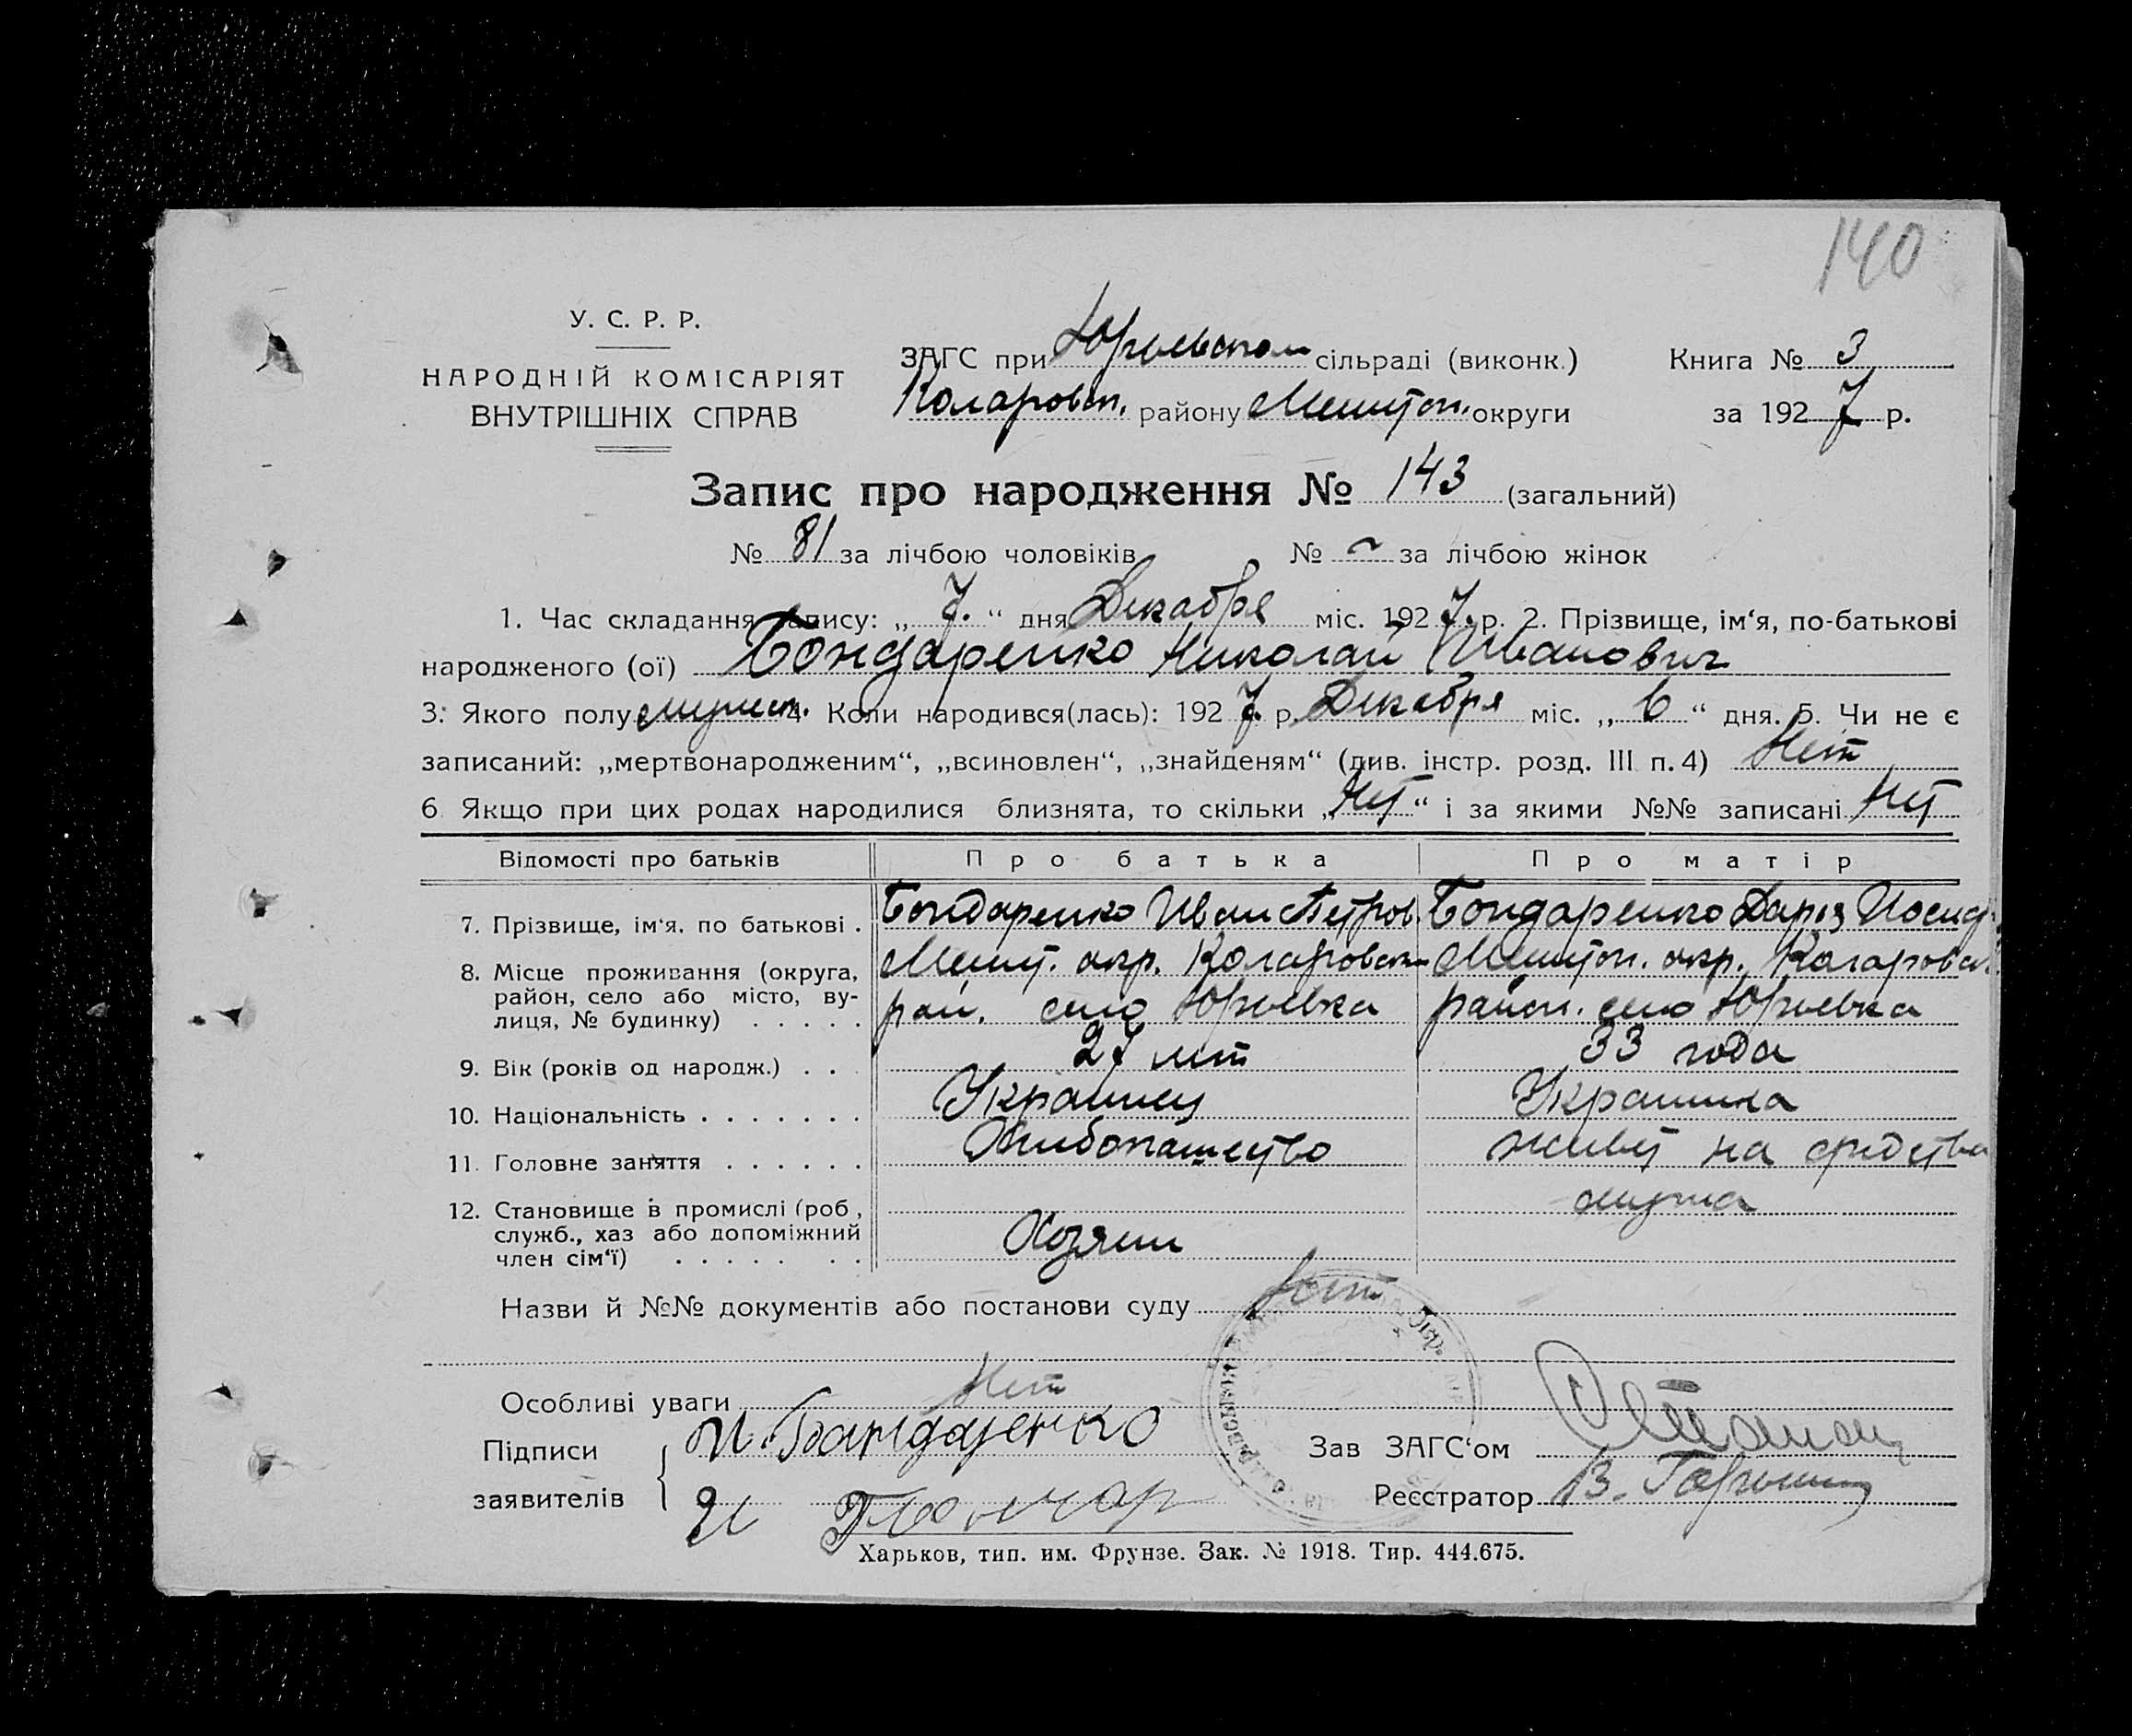 140
У. С. Р. Р.
НАРОДНІЙ КОМІСАРІЯТ
ВНУТРІШНІХ СПРАВ
ЗАГС при Юрьевском сільраді (виконк.) Книга № 3
Коларовск. району Мелитоп. округи за 1927 р.
Запис про народження № 143 (загальний)
№ 81 за лічбою чоловіків № — за лічбою жінок
1. Час складання запису: „ 7. “ дня Декабря міс. 1927 р. 2. Прізвище, ім‘я, по-батькові
народженого (ої) Бондаренко Николай Иванович
3. Якого полу мужск. 4 Коли народився(лась): 1927 р. Декабря міс. „ 6 “ дня. 5. Чи не є
записаний: „мертвонародженим“, „всиновлен“, „знайденям“ (див. інстр. розд. III п. 4) Нет
6 Якщо при цих родах народилися близнята, то скільки „Нет“ і за якими №№ записані Нет
Відомості про батьків Про батька Про матір
7. Прізвище, ім‘я, по батькові . Бондаренко Иван Петров. Бондаренко Дария Иосиф.
8. Місце проживання (округа, Мелит. окр. Коларовск Мелитоп. окр. Коларовск.
район, село або місто, ву- рай. село Юрьевка район. село Юрьевка
лиця, № будинку) . . . . .
9. Вік (років од народж.) . . . 27 лет 33 года
10. Національність . . . . . . . Украинец Украинка
11. Головне заняття . . . . . . Хлебопашество живет на средства
мужа
12. Становище в промислі (роб,
служб., хаз або допоміжний Хозяин
член сім‘ї) . . . . . . .
Назви й №№ документів або постанови суду Нет
Особливі уваги Нет
Підписи И. Бандаренко Зав ЗАГС‘ом
заявителів И Гончар Реєстратор В.
Харьков, тип. им. Фрунзе. Зак. № 1918. Тир. 444.675.